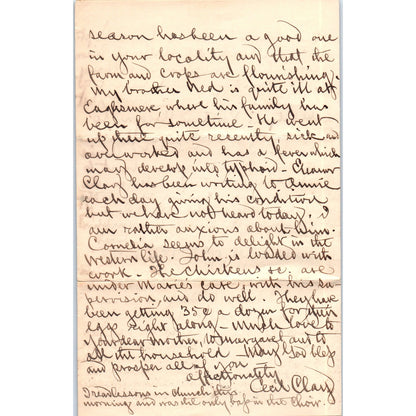 season has been a good one
in your locality and that the
farm and crops are flourishing.
My brother Ned is quite ill at
Eaglesmere where his family has
been for sometime. He went
up there quite recently, sick and
overworked and has a fever which
may develop into typhoid. Eleanor
Clay has been writing to Annie
each day giving his condition
but we have not heard today. I
am rather anxious about him.
Cornelia seems to delight in the
Western life. John is loaded with
work. The chickens &c. are
under Marie's care with his su
pervision, and do well. They have
been getting 35¢ a dozen for their
eggs right along - Much love to
your dear Mother, to Margaret, and to
all the household - May God bless
and prosper all of you
affectionately
Cecil Clay
I read lessons in church this
morning and was the only bass in the Choir.